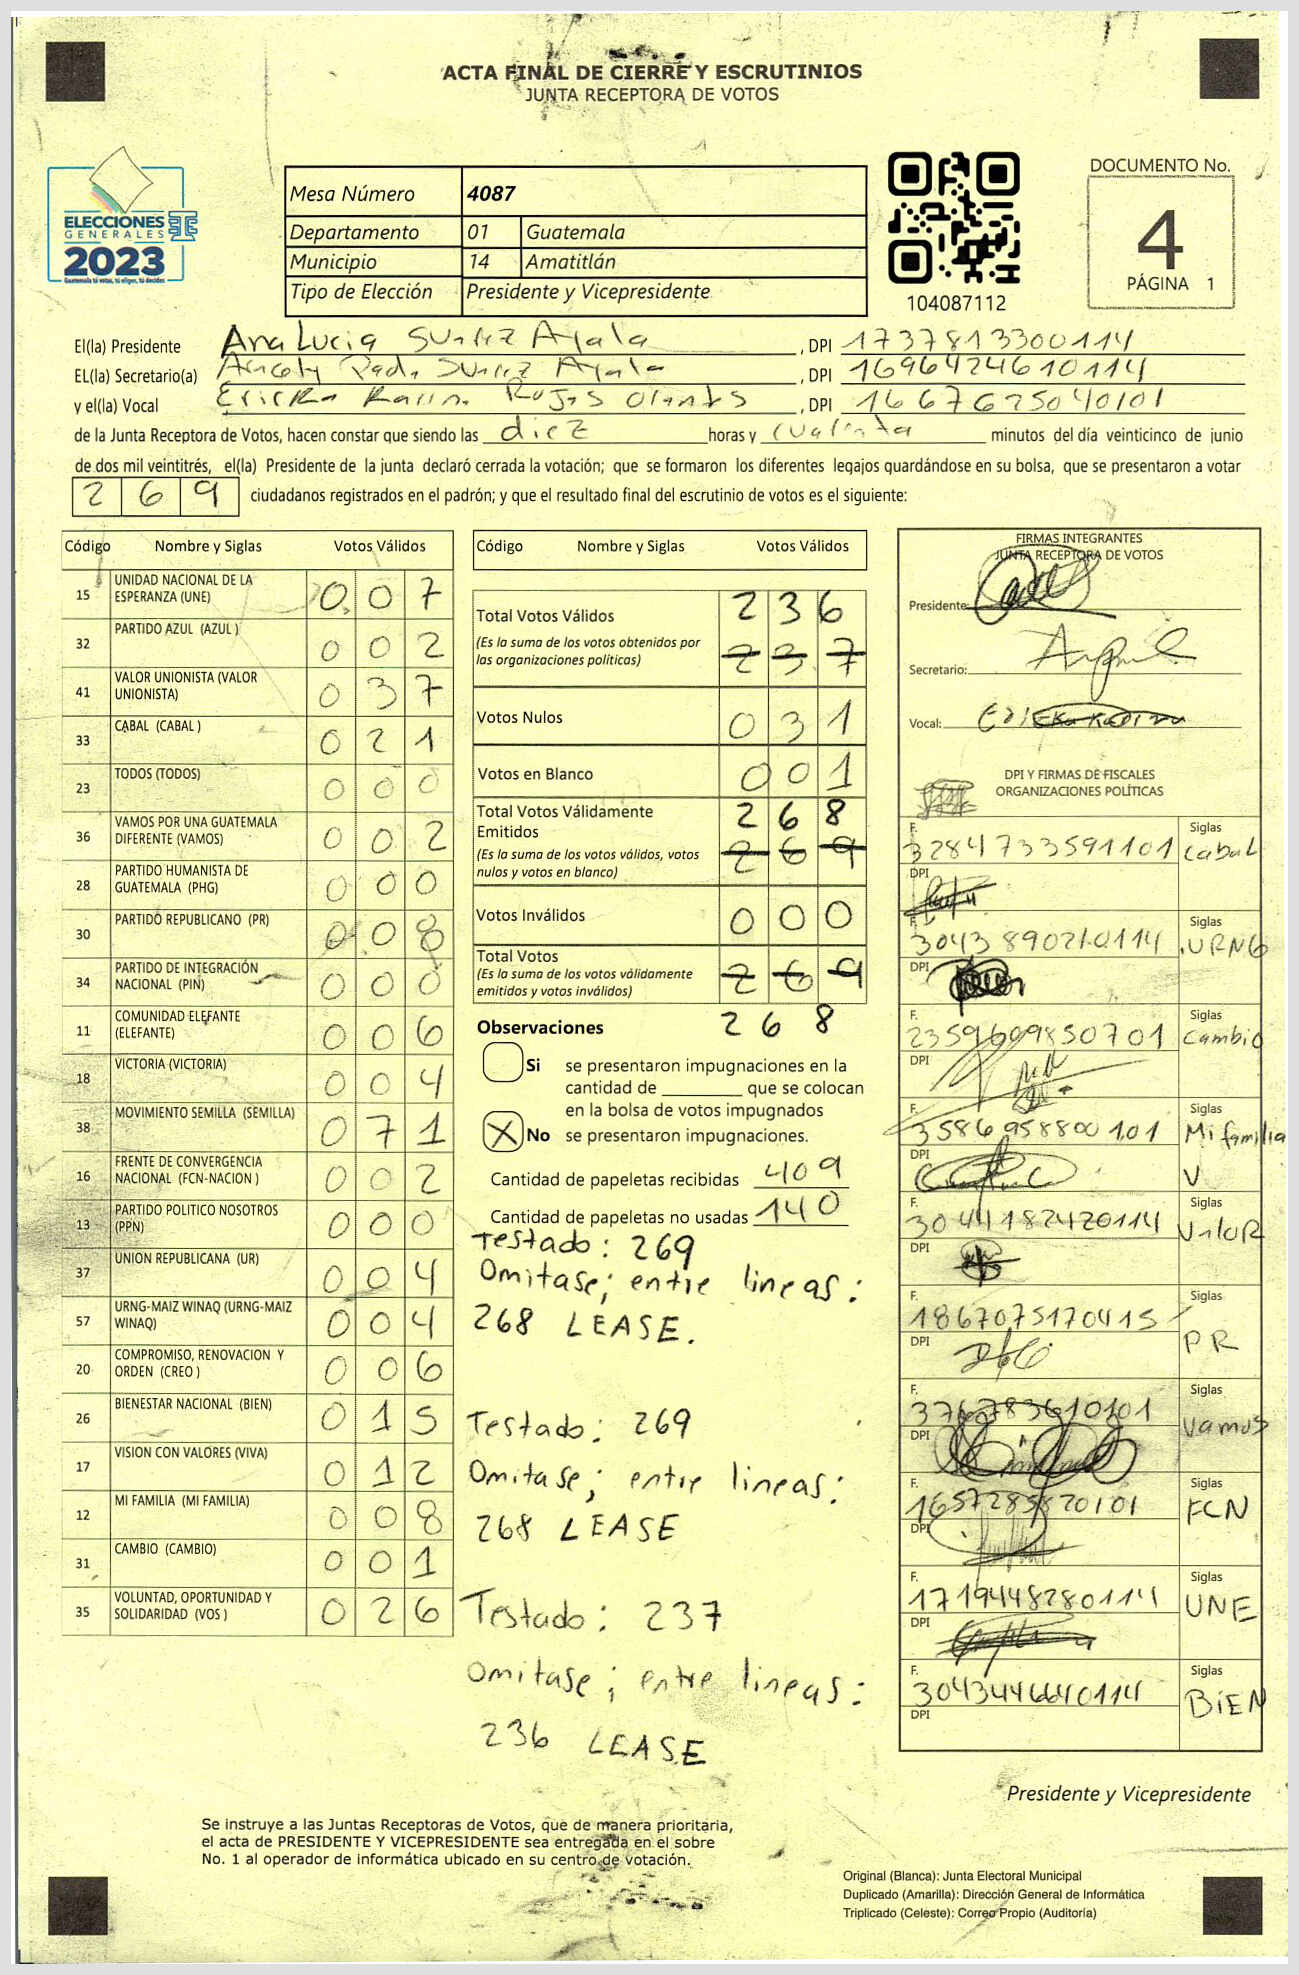 ACTA FINAL DE CIERRE Y ESCRUTINIOS
JUNTA RECEPTORA DE VOTOS
ELECCIONES
GENERALES
2023
Guatemala tú votas, tú eliges, tú decides
Mesa Número 4087
Departamento 01 Guatemala
Municipio 14 Amatitlán
Tipo de Elección Presidente y Vicepresidente
104087112
DOCUMENTO No.
4
PÁGINA 1
El(la) Presidente Ana Lucia Suarez Ayala, DPI 1737813300114
EL(la) Secretario(a) Suarez Ayala, DPI 1696424610114
y el(la) Vocal Ericka Karina Rojas, DPI 1667625040101
de la Junta Receptora de Votos, hacen constar que siendo las diez horas y cuarenta minutos del día veinticinco de junio
de dos mil veintitrés, el(la) Presidente de la junta declaró cerrada la votación; que se formaron los diferentes legajos guardándose en su bolsa, que se presentaron a votar
269 ciudadanos registrados en el padrón; y que el resultado final del escrutinio de votos es el siguiente:
Código Nombre y Siglas Votos Válidos
15 UNIDAD NACIONAL DE LA ESPERANZA (UNE) 007
32 PARTIDO AZUL (AZUL ) 002
41 VALOR UNIONISTA (VALOR UNIONISTA) 037
33 CABAL (CABAL ) 021
23 TODOS (TODOS) 000
36 VAMOS POR UNA GUATEMALA DIFERENTE (VAMOS) 002
28 PARTIDO HUMANISTA DE GUATEMALA (PHG) 000
30 PARTIDO REPUBLICANO (PR) 008
34 PARTIDO DE INTEGRACIÓN NACIONAL (PIN) 000
11 COMUNIDAD ELEFANTE (ELEFANTE) 006
18 VICTORIA (VICTORIA) 004
38 MOVIMIENTO SEMILLA (SEMILLA) 071
16 FRENTE DE CONVERGENCIA NACIONAL (FCN-NACION ) 002
13 PARTIDO POLITICO NOSOTROS (PPN) 000
37 UNION REPUBLICANA (UR) 004
57 URNG-MAIZ WINAQ (URNG-MAIZ WINAQ) 004
20 COMPROMISO, RENOVACION Y ORDEN (CREO ) 006
26 BIENESTAR NACIONAL (BIEN) 015
17 VISION CON VALORES (VIVA) 012
12 MI FAMILIA (MI FAMILIA) 008
31 CAMBIO (CAMBIO) 001
35 VOLUNTAD, OPORTUNIDAD Y SOLIDARIDAD (VOS ) 026
Código Nombre y Siglas Votos Válidos
Total Votos Válidos 236
(Es la suma de los votos obtenidos por
las organizaciones políticas) 237
Votos Nulos 031
Votos en Blanco 001
Total Votos Válidamente
Emitidos 268
(Es la suma de los votos válidos, votos
nulos y votos en blanco) 269
Votos Inválidos 000
Total Votos
(Es la suma de los votos válidamente
emitidos y votos inválidos) 269
Observaciones 268
Si se presentaron impugnaciones en la
cantidad de que se colocan
en la bolsa de votos impugnados
X No se presentaron impugnaciones.
Cantidad de papeletas recibidas 409
Cantidad de papeletas no usadas 140
Testado: 269
Omitase; entre lineas:
268 LEASE.
Testado: 269
Omitase; entre lineas:
268 LEASE
Testado: 237
Omitase; entre lineas:
236 LEASE
FIRMAS INTEGRANTES
JUNTA RECEPTORA DE VOTOS
Presidente:
Secretario:
Vocal: Ericka Karina
DPI Y FIRMAS DE FISCALES
ORGANIZACIONES POLÍTICAS
F. Siglas
3284733591101 Cabal
DPI
F. Siglas
3043890210114 URNG
DPI
F. Siglas
2359609850701 Cambio
DPI
F. Siglas
3586958800101 Mi familia
DPI V
F. Siglas
3044182420114 Valor
DPI
F. Siglas
1867075170415 PR
DPI
F. Siglas
3767783610101 Vamos
DPI
F. Siglas
1657285820101 FCN
DPI
F. Siglas
1719448280114 UNE
DPI
F. Siglas
3043446640114 BIEN
DPI
Presidente y Vicepresidente
Se instruye a las Juntas Receptoras de Votos, que de manera prioritaria,
el acta de PRESIDENTE Y VICEPRESIDENTE sea entregada en el sobre
No. 1 al operador de informática ubicado en su centro de votación.
Original (Blanca): Junta Electoral Municipal
Duplicado (Amarilla): Dirección General de Informática
Triplicado (Celeste): Correo Propio (Auditoría)